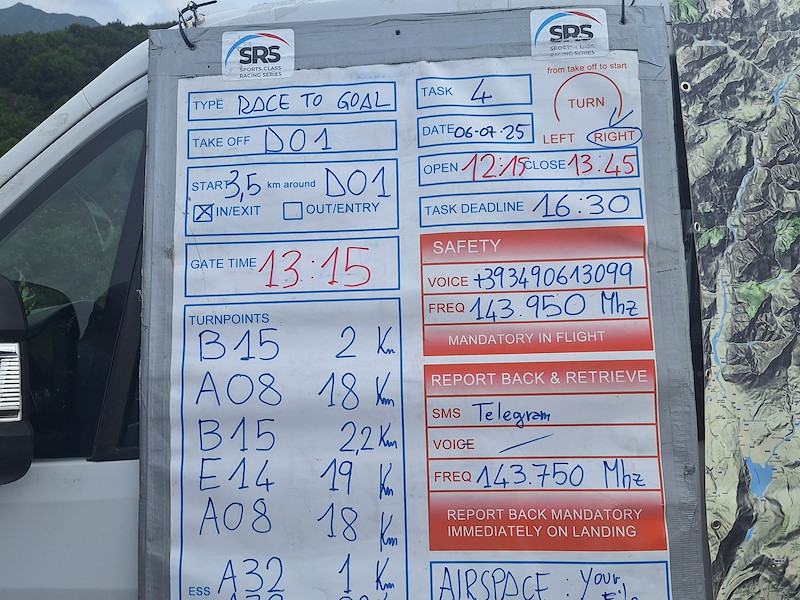 SRS
SPORTS-CLASS
RACING SERIES
SRS
SPORTS-CLASS
RACING SERIES
TYPE RACE TO GOAL
TAKE OFF D01
START 3,5 km around D01
☒ IN/EXIT ☐ OUT/ENTRY
GATE TIME 13:15
TURNPOINTS
B15 2 Km
A08 18 Km
B15 2,2 Km
E14 19 Km
A08 18 Km
ESS A32 1 Km
TASK 4
from take off to start
TURN
LEFT RIGHT
DATE 06-07-25
OPEN 12:15 CLOSE 13:45
TASK DEADLINE 16:30
SAFETY
VOICE +393490613099
FREQ 143.950 Mhz
MANDATORY IN FLIGHT
REPORT BACK & RETRIEVE
SMS Telegram
VOICE —
FREQ 143.750 Mhz
REPORT BACK MANDATORY
IMMEDIATELY ON LANDING
AIRSPACE : Your